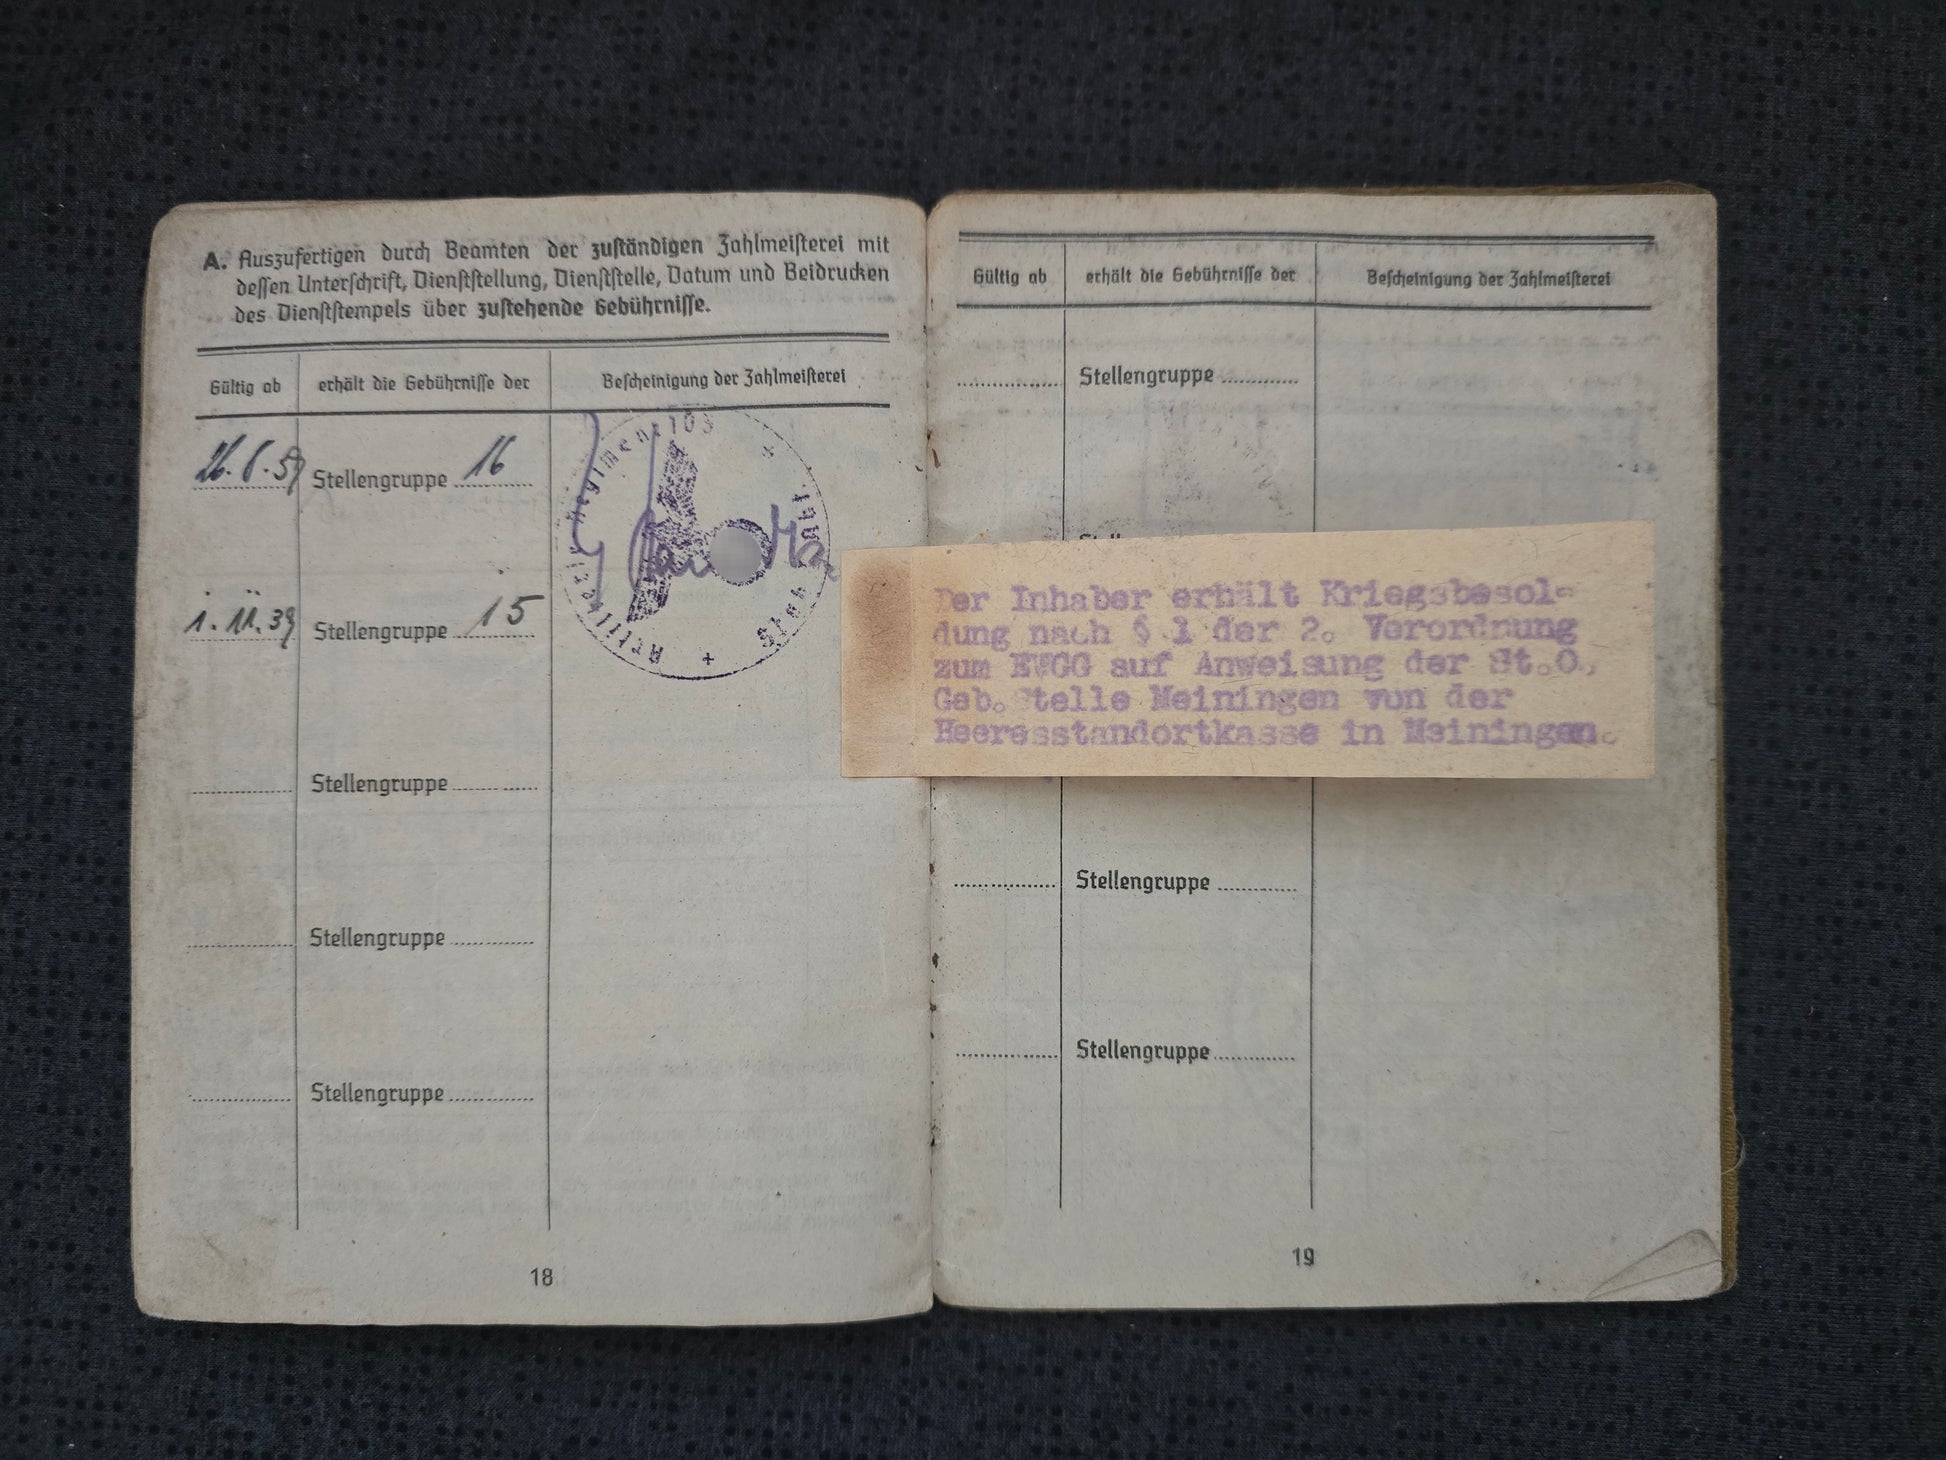 A. Auszufertigen durch Beamten der zuständigen Zahlmeisterei mit
dessen Unterschrift, Dienststellung, Dienststelle, Datum und Beidrucken
des Dienststempels über zustehende Gebührnisse.
Gültig ab erhält die Gebührnisse der Bescheinigung der Zahlmeisterei
26.8.39 Stellengruppe 16
1.11.39 Stellengruppe 15
Stellengruppe
Stellengruppe
Stellengruppe
Artillerie Regiment 103
Stab
18
Gültig ab erhält die Gebührnisse der Bescheinigung der Zahlmeisterei
Stellengruppe
Der Inhaber erhält Kriegsbesol-
dung nach § 1 der 2. Verordnung
zum EWGG auf Anweisung der St.O.
Geb.Stelle Meiningen von der
Heeresstandortkasse in Meiningen.
Stellengruppe
Stellengruppe
19